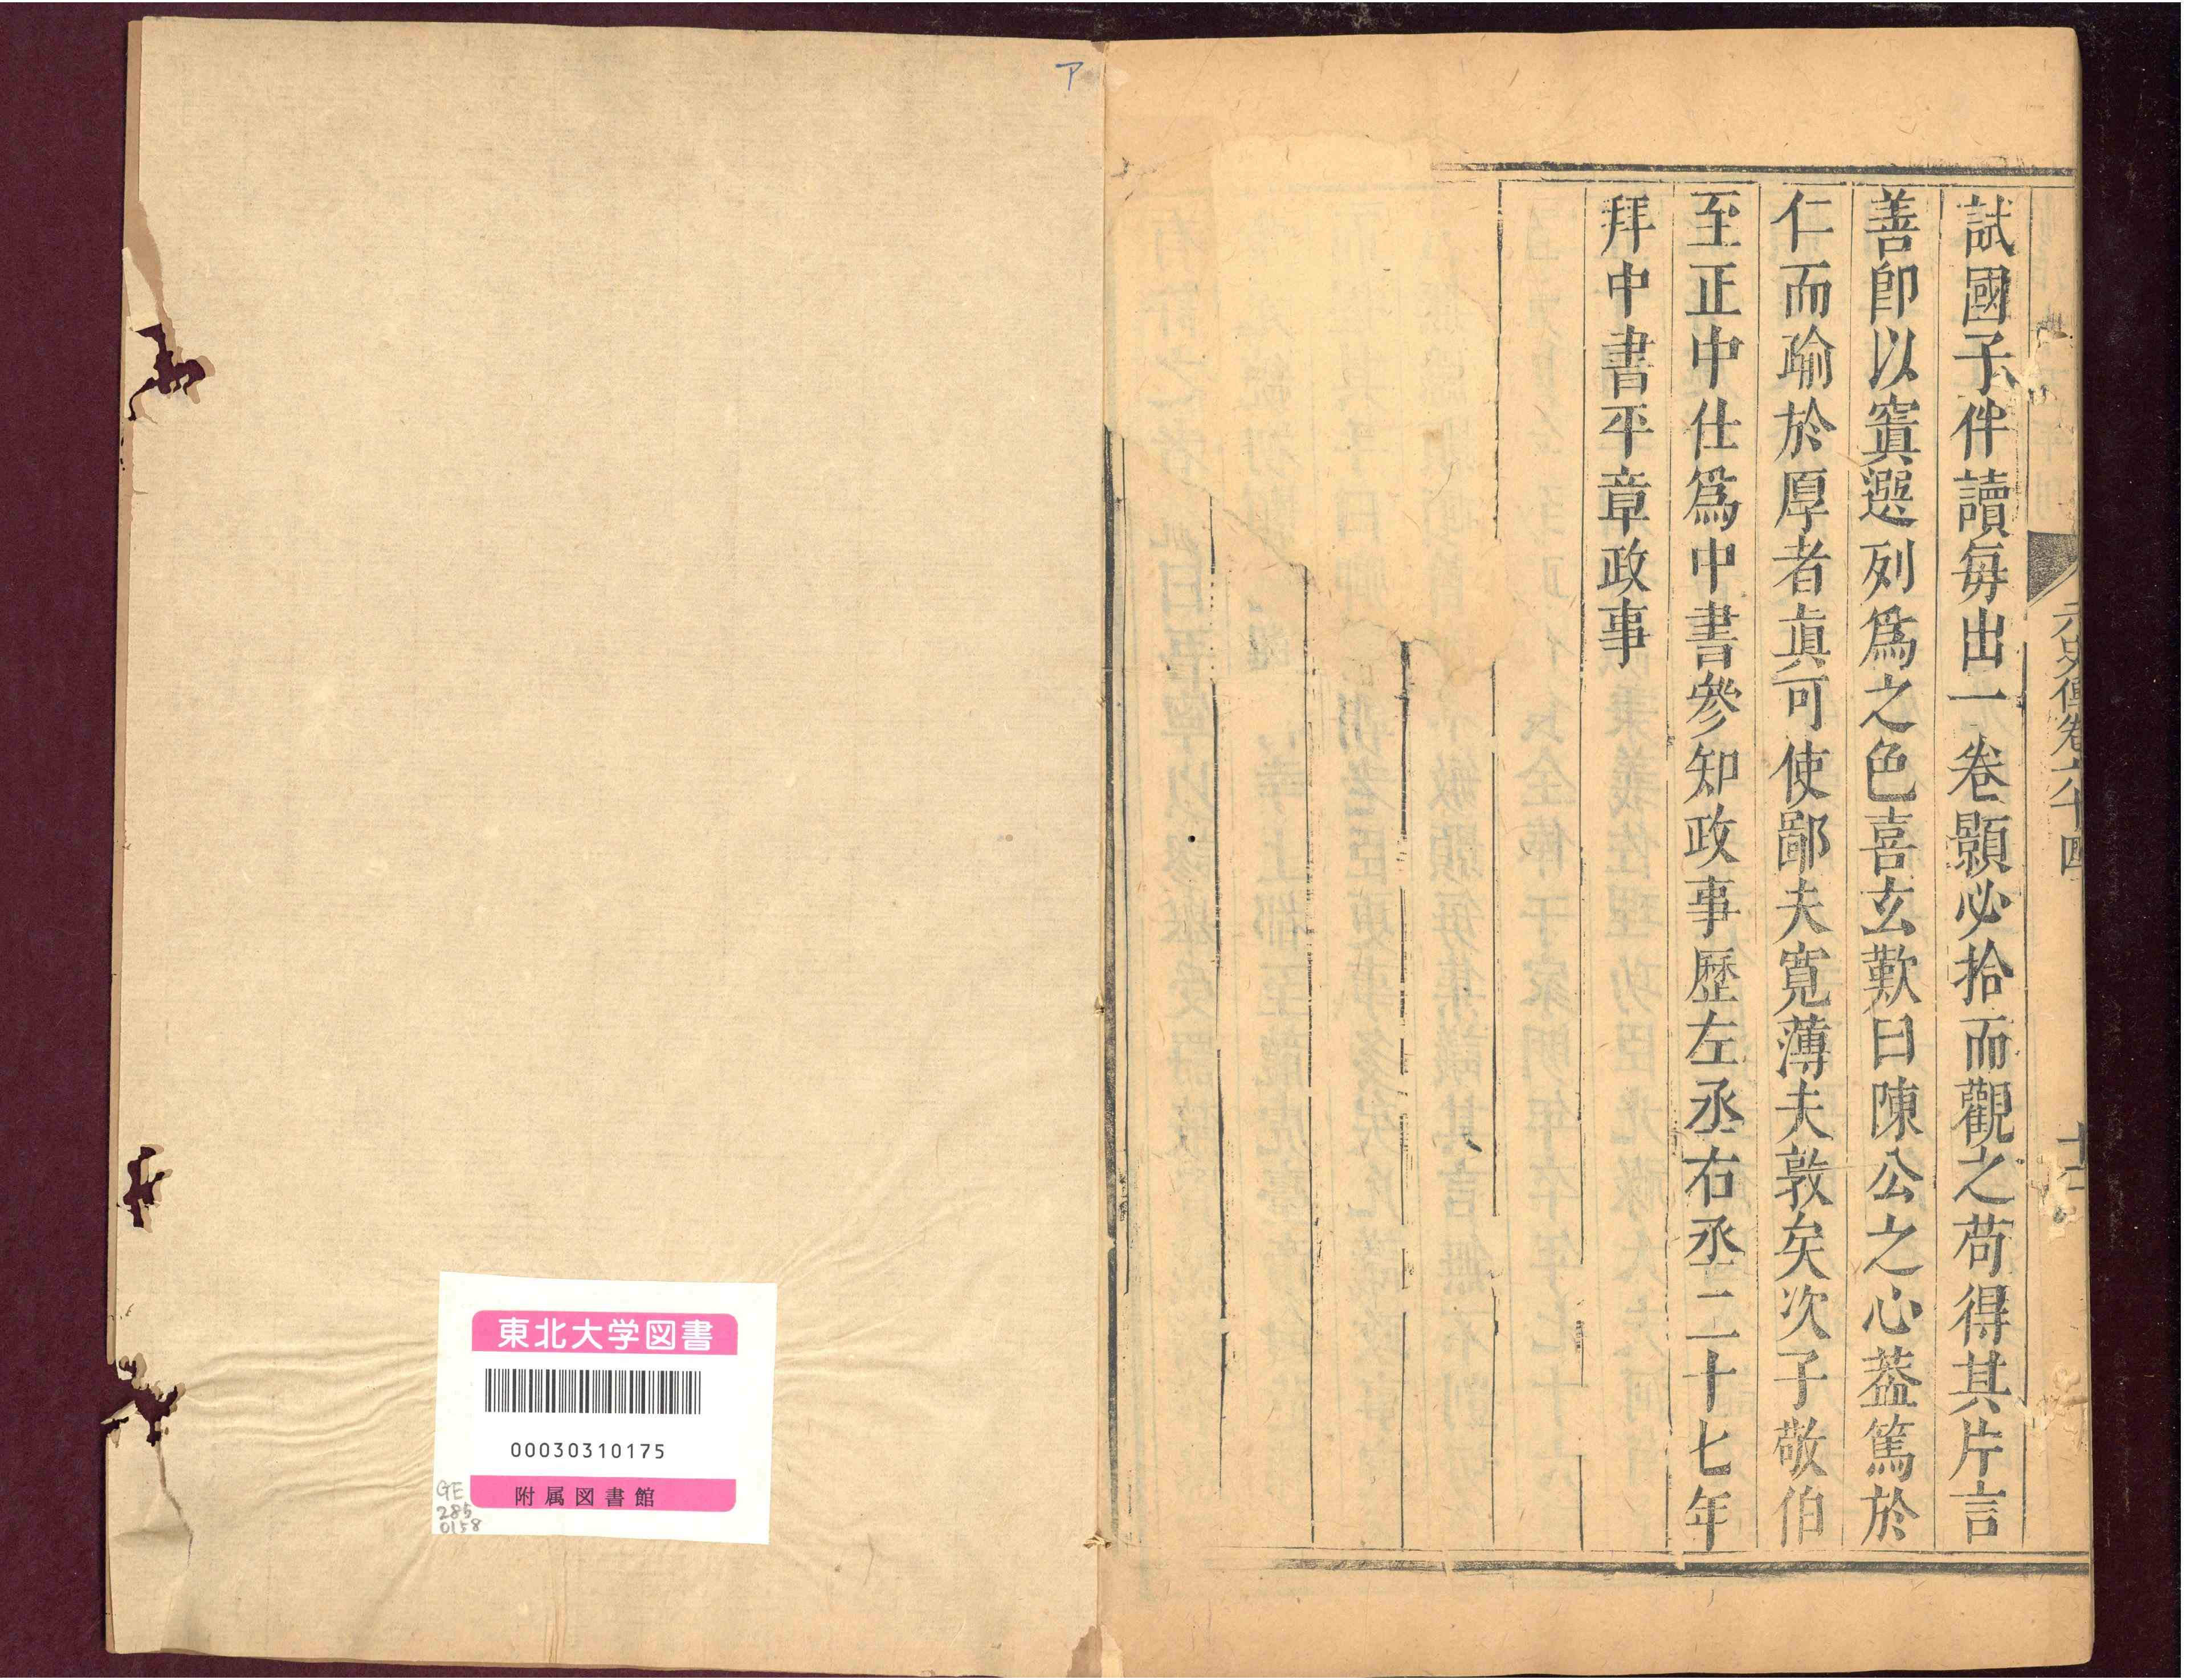 元史傳卷六十四
試國子伴讀每出一卷顥必拾而觀之苟得其片言
善卽以寘選列爲之色喜玄歎曰陳公之心葢篤於
仁而踰於厚者眞可使鄙夫寬薄夫敦矣次子敬伯
至正中仕爲中書參知政事歷左丞右丞二十七年
拜中書平章政事
ア
東北大学図書
00030310175
附属図書館
GE
285
0158